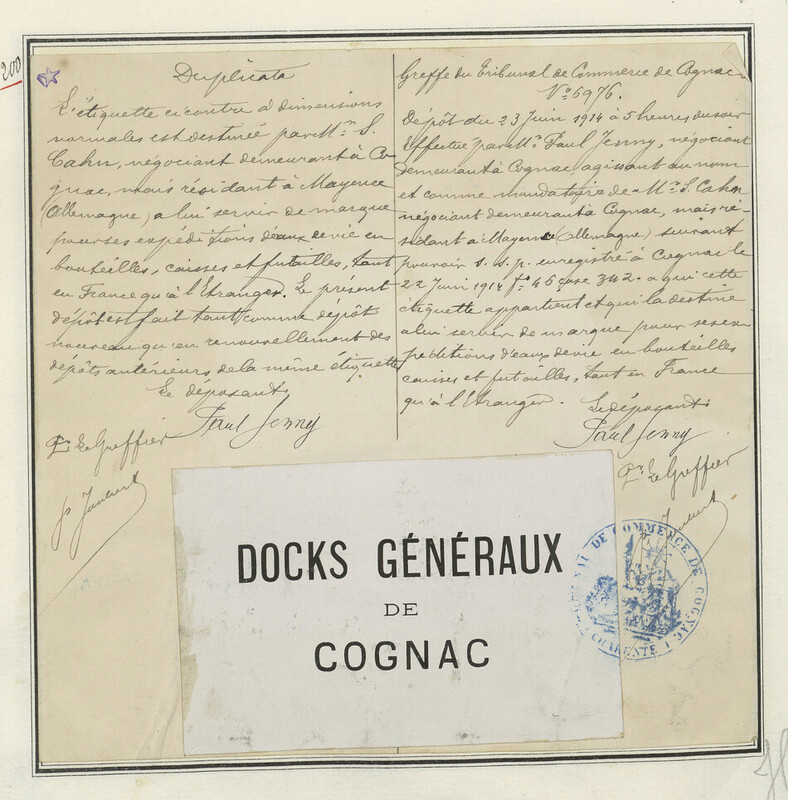 200
Duplicata
L'étiquette ci contre à dimensions
normales est destinée par Mr. S.
Cahn, négociant demeurant à Co
gnac, mais résidant à Mayence
(Allemagne) a lui servir de marque
pour ses expéditions d'eaux de vie en
bouteilles, caisses et futailles, tant
en France qu'à l'Etranger. Le présent
dépôt est fait tant comme dépôt
nouveau qu'en renouvellement des
dépôts antérieurs de la même étiquette
Le déposant,
Paul Jenny
Pr. Le Greffier
Greffe du Tribunal de Commerce de Cognac
No. 6976.
Dépôt du 23 Juin 1914 à 5 heures du soir
Effectué par Mr. Paul Jenny, négociant
demeurant à Cognac, agissant au nom
et comme mandataire de Mr. S. Cahn
négociant demeurant à Cognac, mais ré-
sidant à Mayence (Allemagne) suivant
pouvoir s. s. p. enregistré à Cognac le
22 Juin 1914 fo. 46 case 342. a qui cette
étiquette appartient et qui la destine
a lui servir de marque pour ses ex
péditions d'eaux de vie en bouteilles
caisses et futailles, tant en France
qu'à l'Etranger. Le déposant:
Paul Jenny
Pr. Le Greffier
DOCKS GÉNÉRAUX
DE
COGNAC
TRIBUNAL DE COMMERCE DE COGNAC
CHARENTE